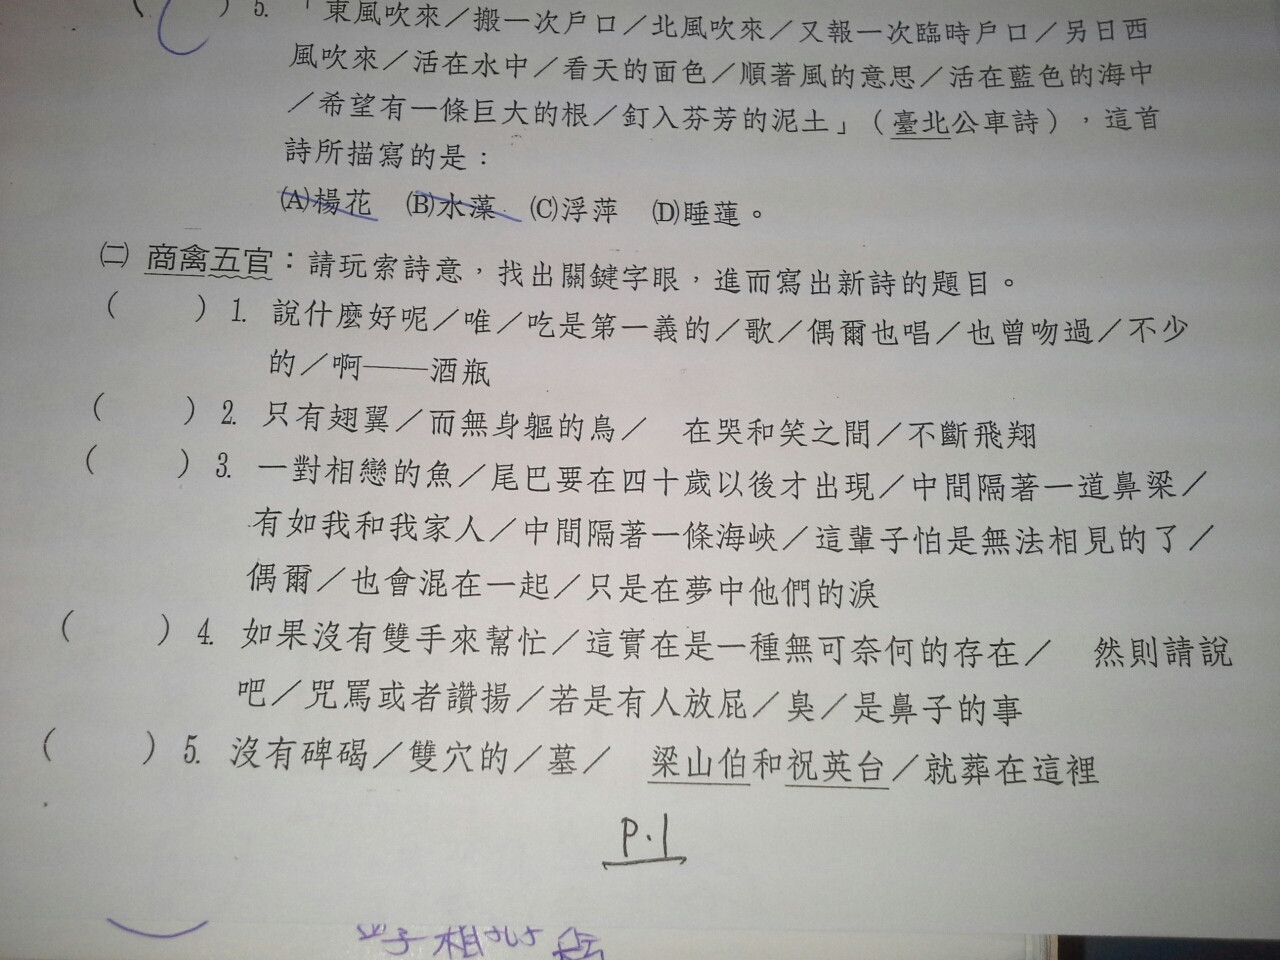 ( ) 5. 「東風吹來／搬一次戶口／北風吹來／又報一次臨時戶口／另日西
風吹來／活在水中／看天的面色／順著風的意思／活在藍色的海中
／希望有一條巨大的根／釘入芬芳的泥土」（臺北公車詩），這首
詩所描寫的是：
(A)楊花 (B)水藻 (C)浮萍 (D)睡蓮。
㈡ 商禽五官：請玩索詩意，找出關鍵字眼，進而寫出新詩的題目。
( ) 1. 說什麼好呢／唯／吃是第一義的／歌／偶爾也唱／也曾吻過／不少
的／啊──酒瓶
( ) 2. 只有翅翼／而無身軀的鳥／ 在哭和笑之間／不斷飛翔
( ) 3. 一對相戀的魚／尾巴要在四十歲以後才出現／中間隔著一道鼻梁／
有如我和我家人／中間隔著一條海峽／這輩子怕是無法相見的了／
偶爾／也會混在一起／只是在夢中他們的淚
( ) 4. 如果沒有雙手來幫忙／這實在是一種無可奈何的存在／ 然則請說
吧／咒罵或者讚揚／若是有人放屁／臭／是鼻子的事
( ) 5. 沒有碑碣／雙穴的／墓／ 梁山伯和祝英台／就葬在這裡
P.1